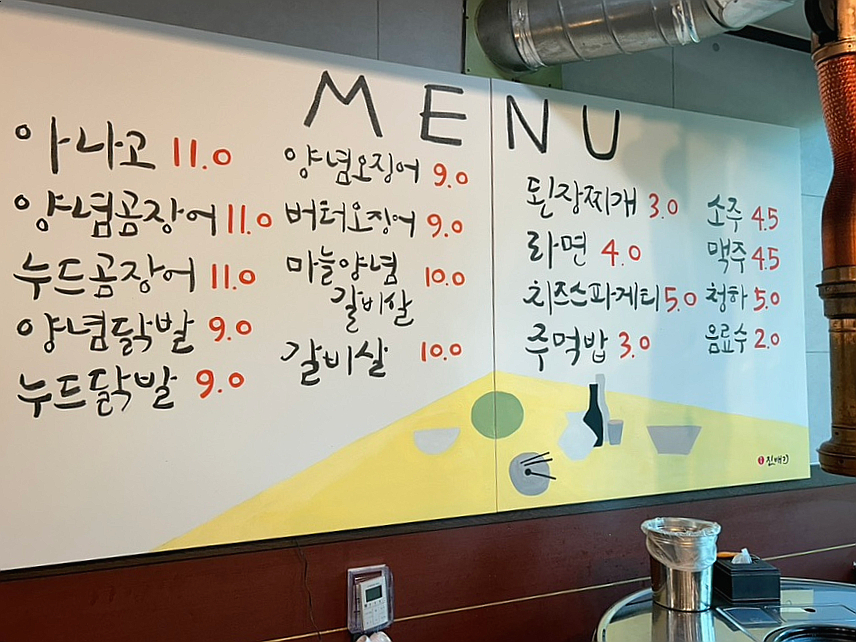 MENU
아나고 11.0
양념곰장어 11.0
누드곰장어 11.0
양념닭발 9.0
누드닭발 9.0
양념오징어 9.0
버터오징어 9.0
마늘양념
갈비살 10.0
갈비살 10.0
된장찌개 3.0
라면 4.0
치즈스파게티 5.0
주먹밥 3.0
소주 4.5
맥주 4.5
청하 5.0
음료수 2.0